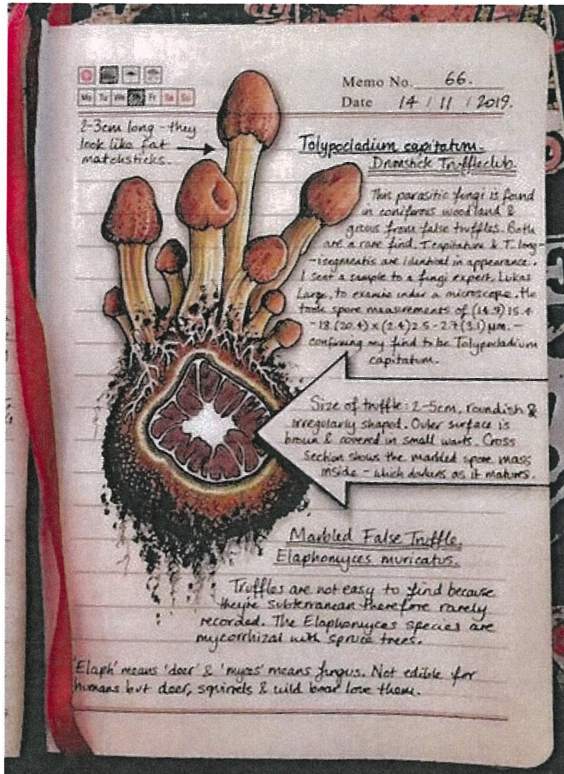 Memo No. 66.
Mo Tu We Fr Sa Su
Date 14 / 11 / 2019.
2-3cm long - they
look like fat
matchsticks.
Tolypocladium capitatum.
Drumstick Truffleclub.
This parasitic fungi is found
in coniferous woodland &
grows from false truffles. Both
are a rare find. T.capitatum & T. long-
-isegmentis are identical in appearance.
I sent a sample to a fungi expert, Lukas
Large, to examine under a microscope. He
took spore measurements of (14.9) 15.4
-18 (20.4) x (2.4) 2.5 - 2.7 (3.1) µm. -
confirming my find to be Tolypocladium
capitatum.
Size of truffle: 2-5cm, roundish &
irregularly shaped. Outer surface is
brown & covered in small warts. Cross
Section shows the marbled spore mass
inside - which darkens as it matures.
Marbled False Truffle.
Elaphomyces muricatus.
Truffles are not easy to find because
they're subterranean therefore rarely
recorded. The Elaphomyces species are
mycorrhizal with spruce trees.
'Elaph' means 'deer' & 'myces' means fungus. Not edible for
humans but deer, squirrels & wild boar love them.